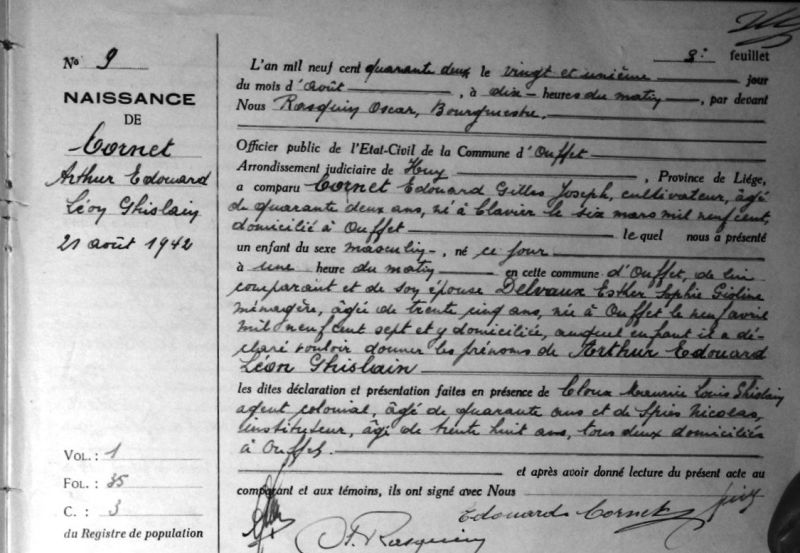 3e feuillet
N° 9
NAISSANCE
DE
Cornet
Arthur Edouard
Léon Ghislain
21 août 1942
L'an mil neuf cent quarante deux le vingt et unième jour
du mois d'août, à dix heures du matin, par devant
Nous Rasquin Oscar, Bourgmestre,
Officier public de l'Etat-Civil de la Commune d'Ouffet
Arrondissement judiciaire de Huy, Province de Liége,
a comparu Cornet Edouard Gilles Joseph, cultivateur, âgé
de quarante deux ans, né à Clavier le six mars mil neuf cent,
domicilié à Ouffet le quel nous a présenté
un enfant du sexe masculin, né ce jour
à une heure du matin en cette commune d'Ouffet, de lui
comparant et de son épouse Delvaux Esther Sophie
ménagère, âgée de trente cinq ans, née à Ouffet le neuf avril
mil neuf cent sept et y domiciliée, auquel enfant il a dé-
claré vouloir donner les prénoms de Arthur Edouard
Léon Ghislain
les dites déclaration et présentation faites en présence de Cloux Maurice Louis Ghislain
agent colonial, âgé de quarante ans et de Spiès Nicolas,
instituteur, âgé de trente huit ans, tous deux domiciliés
à Ouffet.
et après avoir donné lecture du présent acte au
comparant et aux témoins, ils ont signé avec Nous
Edouard Cornet
Rasquin
VOL. : 1
FOL. : 35
C. : 3
du Registre de population